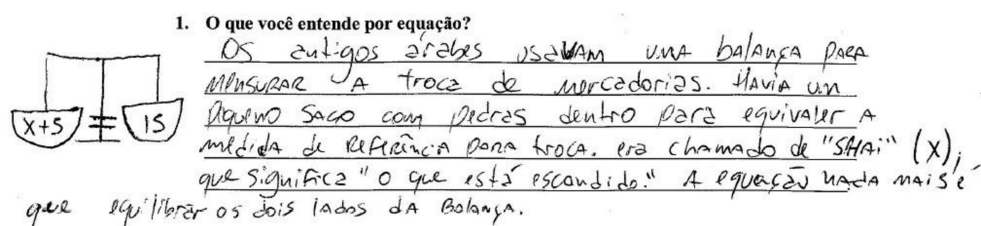 1. O que você entende por equação?
Os antigos árabes usavam uma balança para
mensurar a troca de mercadorias. Havia um
pequeno saco com pedras dentro para equivaler a
medida de referência para troca. era chamado de "SHAi" (x),
que significa "o que está escondido." A equação nada mais é
que equilibrar os dois lados da balança.
x+5 = 15